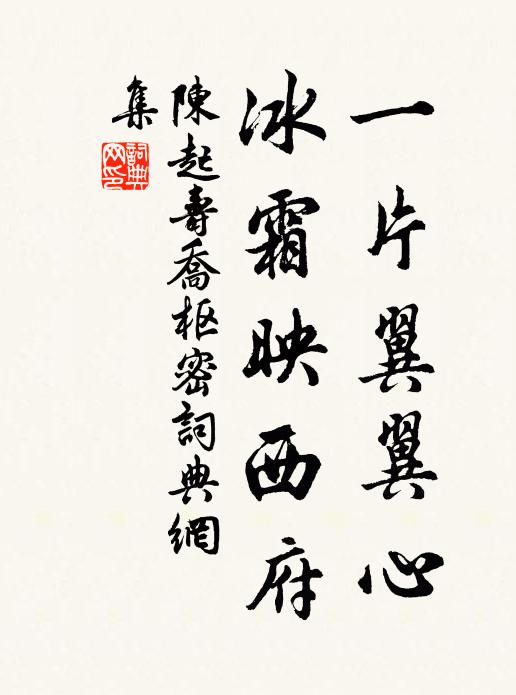 一片翼翼心
冰霜映西府
陳起壽喬樞密詞典網
集
詞典
网印